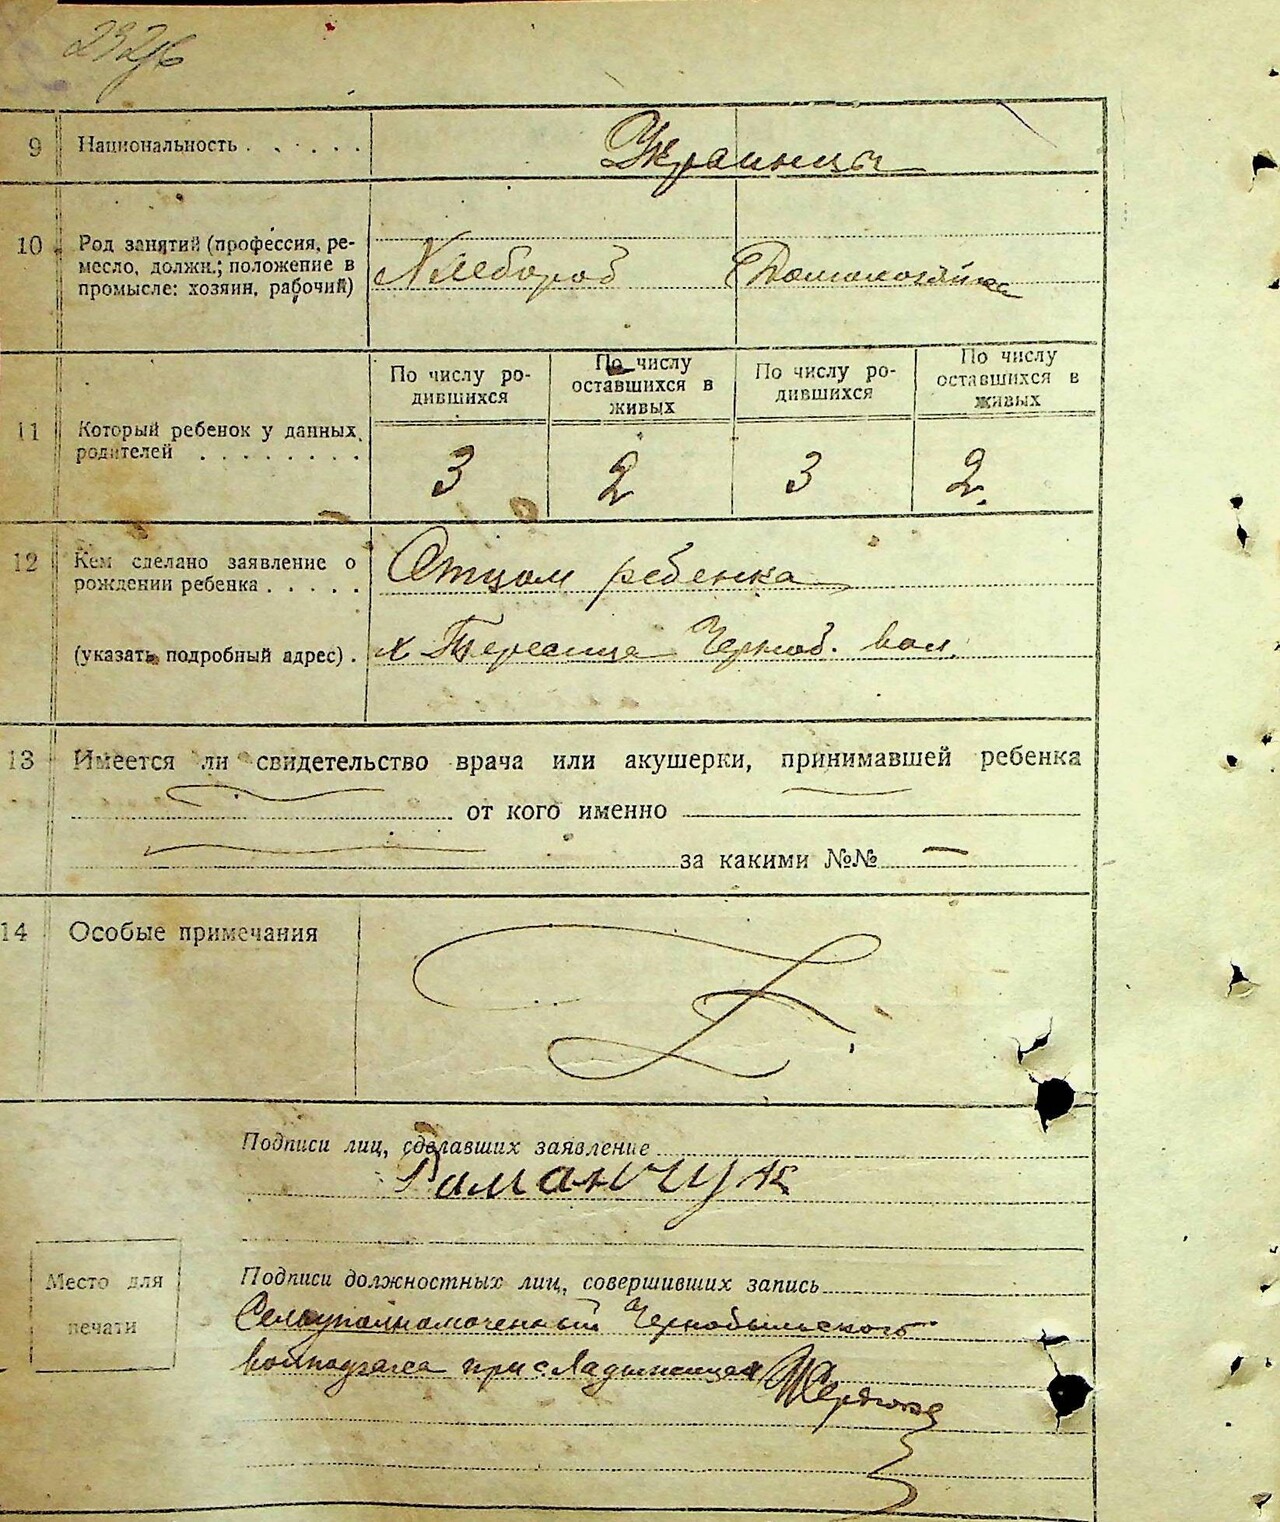 232б
9 Национальность . . . . . . Украинцы
10 Род занятий (профессия, ре-
месло, должн.; положение в
промысле: хозяин, рабочий)
Хлебороб Домохозяйка
По числу ро-
дившихся
По числу
оставшихся в
живых
По числу ро-
дившихся
По числу
оставшихся в
живых
11 Который ребенок у данных
родителей . . . . . . . .
3 2 3 2
12 Кем сделано заявление о
рождении ребенка . . . . .
Отцом ребенка
(указать подробный адрес) . х Тересица Черноб. вол.
13 Имеется ли свидетельство врача или акушерки, принимавшей ребенка
от кого именно
за какими №№ —
14 Особые примечания
Подписи лиц, сделавших заявление
Романчук
Место для
печати
Подписи должностных лиц, совершивших запись
Селоуполномоченный Чернобыльского
при с Ладыжицах